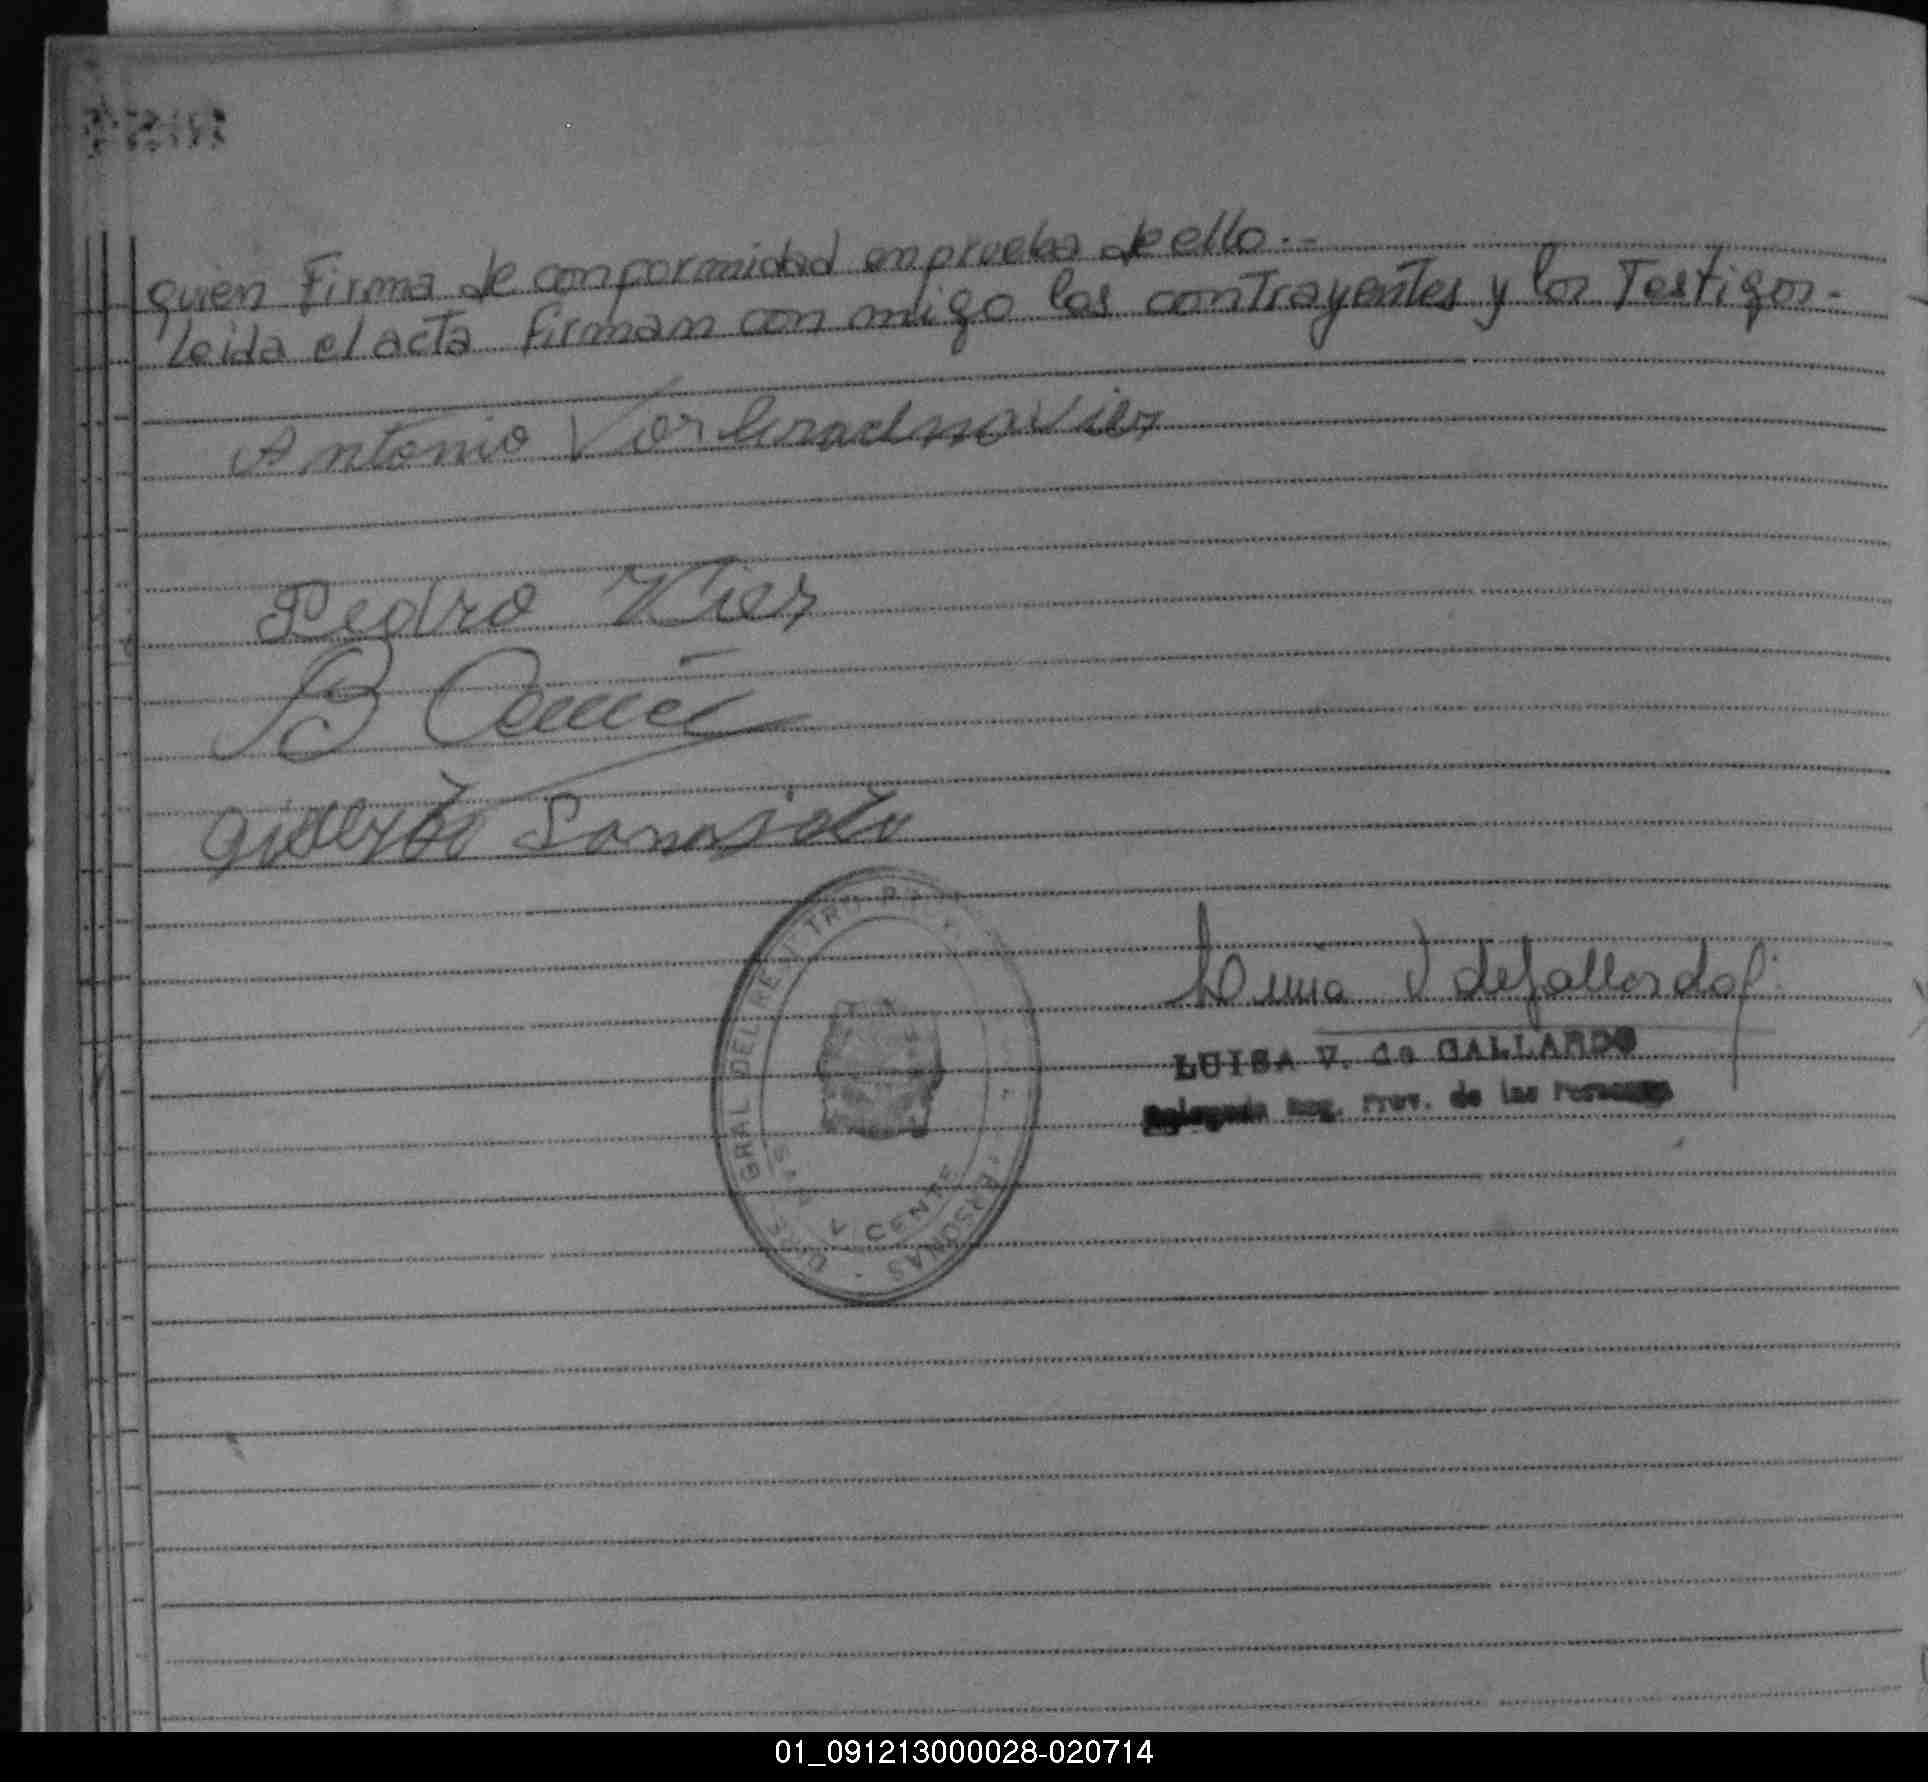 quien Firma de conformidad en prueba de ello.-
Leida el acta Firman con migo los contrayentes y los Testigos.-
Antonio
Pedro Vier
B
Gilberto
GRAL DEL REGISTRO
PERSONAS
SAN VICENTE
Luisa V de Gallardo
LUISA V. de GALLARDO
Delegada Reg. Prov. de las Personas
01_091213000028-020714